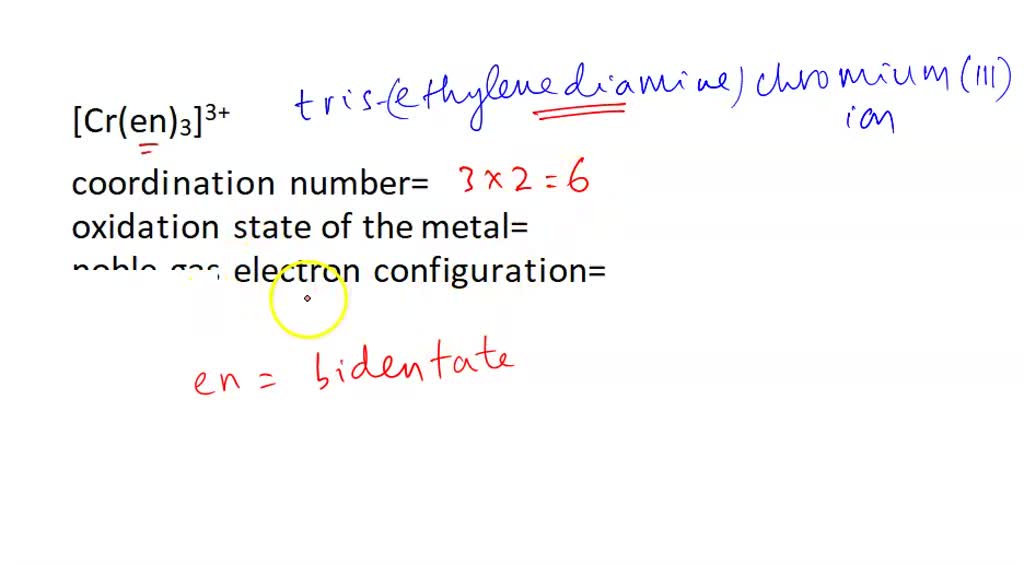 tris-(ethylenediamine) chromium (III)
ion
[Cr(en)₃]³⁺
coordination number= 3 x 2 = 6
oxidation state of the metal=
noble gas electron configuration=
en = bidentate